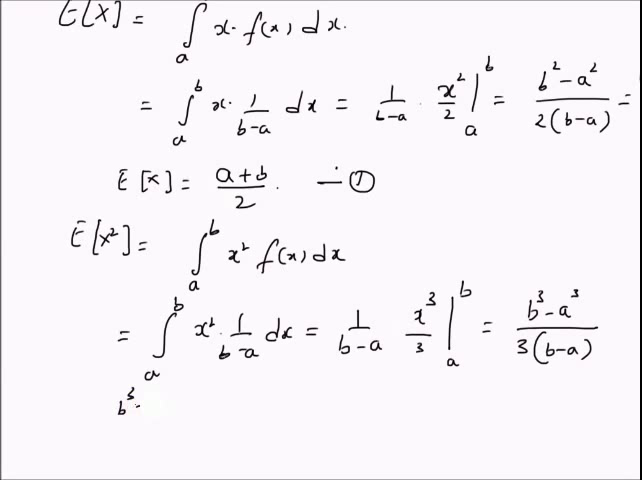 E[X] = ∫ₐ x· f(x) dx.
= ∫ₐᵇ x· 1/(b-a) dx = 1/(b-a) · x²/2 |ₐᵇ = (b²-a²)/(2(b-a)) =
E[X] = (a+b)/2. — ①
E[X²] = ∫ₐᵇ x² f(x) dx
= ∫ₐᵇ x²· 1/(b-a) dx = 1/(b-a) x³/3 |ₐᵇ = (b³-a³)/(3(b-a))
b³-